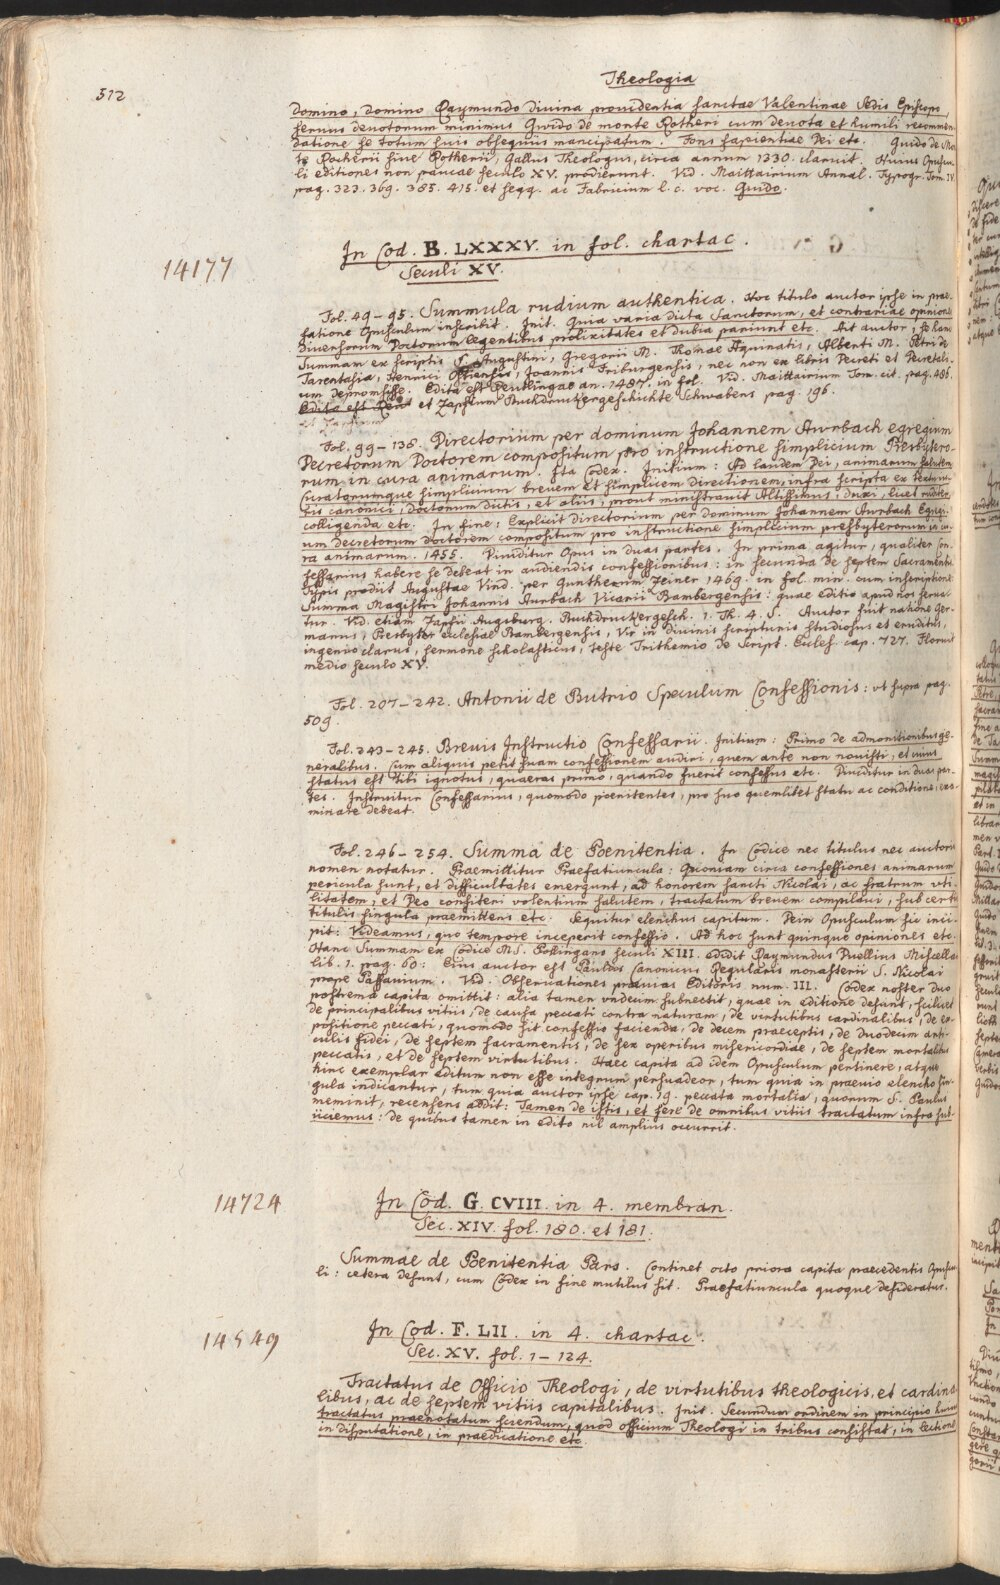 Theologia
512
Domino, Domino Raymundo Divina providentia sanctae Valentinae Sedis Episcopo,
servus devotorum minimus Guido de monte Rotheri cum devota et humili recommen-
datione se totum suis obsequiis mancipatum. Fons sapientiae Dei etc. Guido de Mon-
te Rocherii sive Rotherii, Gallus Theologus, circa annum 1330. claruit. Huius Opuscu-
li editiones non paucae seculo XV. prodierunt. Vid. Maittairium Annal. Typogr. Tom. IV.
pag. 323. 369. 385. 415. et seqq. ac Fabricium l. c. voc. Guido.
14177
In Cod. B. LXXXV. in fol. chartac.
Seculi XV.
Fol. 49-95. Summula rudium authentica. Hoc titulo auctor ipse in prae-
fatione Opusculum inscribit. Init. Quia varia dicta Sanctorum, et contrariae opiniones
diversorum Doctorum legentibus prolixitates et dubia pariunt etc. Ait auctor, se hanc
Summam ex scriptis S. Augustini, Gregorii M. Thomae Aquinatis, Alberti M. Petri de
Tarentasia, Henrici Ostiensis, Joannis Friburgensis, nec non ex libris Decreti et Decretali-
um depromsisse. Edita est Reutlingae an. 1487. in fol. Vid. Maittairium Tom. cit. pag. 486.
Edita est Reut et Zapfium Buchdruckergeschichte Schwabens pag. 196.
et Zapfium
Fol. 99-138. Directorium per dominum Johannem Aurbach egregium
Decretorum Doctorem compositum pro instructione simplicium Presbytero-
rum in cura animarum. Ita codex. Initium: Ad laudem Dei, animarum salutem,
Curatorumque simplicium brevem et simplicem directionem, infra scripta ex textu iu-
ris canonici, doctorum dictis, et aliis, prout ministravit Altissimus, duxi, licet ruditer,
colligenda etc. In fine: Explicit directorium per dominum Johannem Aurbach Egregi-
um decretorum doctorem compositum pro instructione simplicium presbyterorum in cu-
ra animarum. 1455. Dividitur Opus in duas partes. In prima agitur, qualiter Con-
fessarius habere se debeat in audiendis confessionibus: in secunda de septem Sacramentis.
Typis prodiit Augustae Vind. per Guntherum Zeiner 1469. in fol. min. cum inscriptione:
Summa Magistri Johannis Aurbach Vicarii Bambergensis: quae editio apud nos serva-
tur. Vid. etiam Zapfii Augsburg. Buchdruckergesch. 1. Th. 4. S. Auctor fuit natione Ger-
manus, Presbyter ecclesiae Bambergensis, Vir in divinis scripturis studiosus et eruditus,
ingenio clarus, sermone scholasticus, teste Trithemio de Script. Eccles. cap. 727. Floruit
medio seculo XV.
Fol. 207-242. Antonii de Butrio Speculum Confessionis: ut supra pag.
509.
Fol. 243-245. Brevis Instructio Confessarii. Initium: Primo de admonitionibus ge-
neralibus. Cum aliquis petit suam confessionem audiri, quem ante non novisti, et cuius
status est tibi ignotus, quaeras primo, quando fuerit confessus etc. Dividitur in duas par-
tes. Instruitur Confessarius, quomodo poenitentes, pro suo quemlibet statu ac conditione, exa-
minare debeat.
Fol. 246-254. Summa de Poenitentia. In Codice nec titulus nec auctoris
nomen notatur. Praemittitur Praefatiuncula: Quoniam circa confessiones animarum
pericula sunt, et difficultates emergunt, ad honorem sancti Nicolai, ac fratrum uti-
litatem, et Deo confiteri volentium salutem, tractatum brevem compilavi, sub certis
titulis singula praemittens etc. Sequitur elenchus capitum. Dein Opusculum sic inci-
pit: Videamus, quo tempore inceperit confessio. Ad hoc sunt quinque opiniones etc.
Hanc Summam ex Codice MS. Pollingano seculi XIII. edidit Raymundus Duellius Miscella.
lib. 1. pag. 60: Eius auctor est Paulus Canonicus Regularis monasterii S. Nicolai
prope Passavium. Vid. Observationes praevias Editoris num. III. Codex noster duo
postrema capita omittit: alia tamen undecim subnectit, quae in editione desunt, scilicet
de principalibus vitiis, de causa peccati contra naturam, de virtutibus cardinalibus, de ex-
positione peccati, quomodo sit confessio facienda, de decem praeceptis, de duodecim arti-
culis fidei, de septem sacramentis, de sex operibus misericordiae, de septem mortalibus
peccatis, et de septem virtutibus. Haec capita ad idem Opusculum pertinere, atque
hinc exemplar editum non esse integrum persuadeor, tum quia in praevio elencho sin-
gula indicantur, tum quia auctor ipse cap. 19. peccata mortalia, quorum S. Paulus
meminit, recensens addit: Tamen de istis, et fere de omnibus vitiis tractatum infra sub-
iiciemus: de quibus tamen in edito nil amplius occurrit.
14724
In Cod. G. CVIII. in 4. membran.
Sec. XIV. fol. 180. et 181.
Summae de Poenitentia Pars. Continet octo priora capita praecedentis Opuscu-
li: cetera desunt, cum Codex in fine mutilus sit. Praefatiuncula quoque desideratur.
14549
In Cod. F. LII. in 4. chartac.
Sec. XV. fol. 1-124.
Tractatus de Officio Theologi, de virtutibus theologicis, et cardina-
libus, ac de septem vitiis capitalibus. Init. Secundum ordinem in principio huius
tractatus praenotatum sciendum, quod officium Theologi in tribus consistat, in lectione
in disputatione, in praedicatione etc.